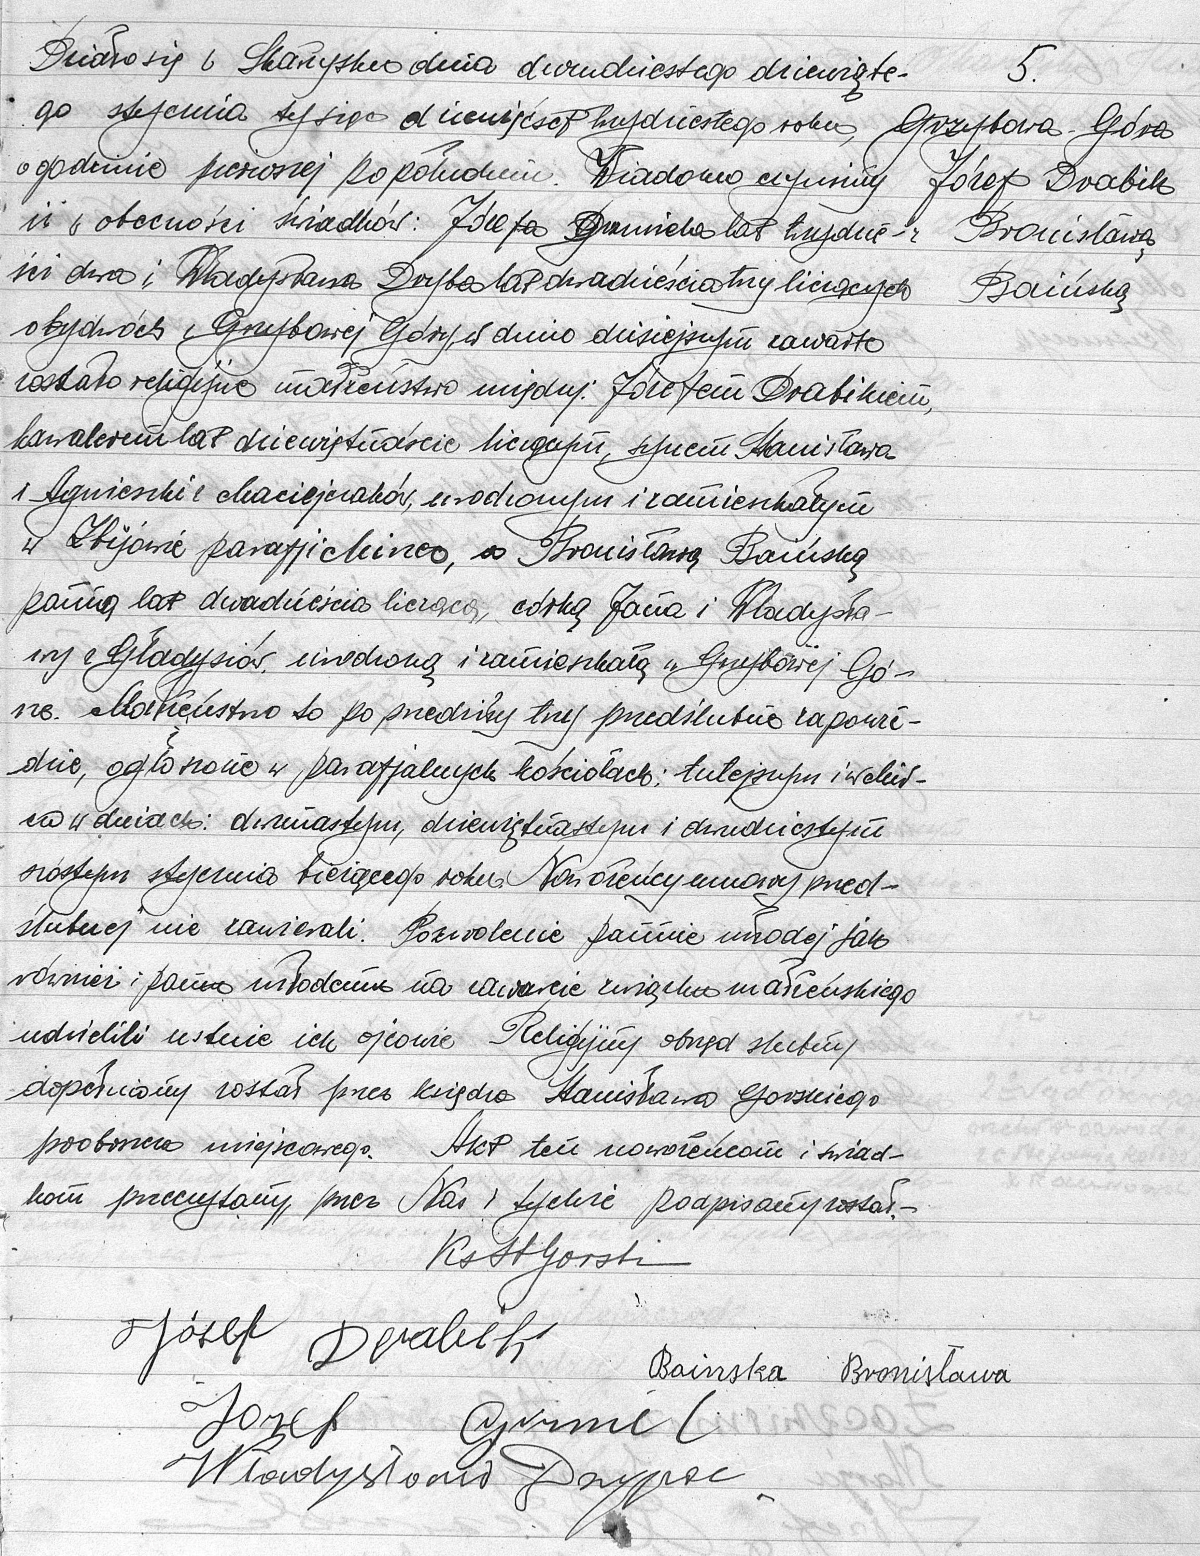 Działo się w Skarżysku dnia dwudziestego dziewiąte-
go stycznia tysiąc dziewięćset trzydziestego roku,
o godzinie pierwszej po południu. Wiadomo czynimy
iż w obecności świadków: Józefa lat trzydzie-
ści dwa i Władysława Dryba lat dwadzieścia trzy liczących
obydwóch z Grzybowej Góry, w dniu dzisiejszym zawarte
zostało religijne małżeństwo między: Józefem Drabikiem,
kawalerem lat dziewiętnaście liczącym, synem Stanisława
i Agnieszki z Maciejczaków, urodzonym i zamieszkałym
w Zbijowie parafji Mirzec, a Bronisławą Baińską
panną lat dwadzieścia liczącą, córką Jana i Władysła-
wy z Gładysiów, urodzoną i zamieszkałą w Grzybowej Gó-
rze. Małżeństwo to poprzedziły trzy przedślubne zapowie-
dzie, ogłoszone w parafjalnych kościołach: tutejszym i w Mirz-
cu w dniach: dwunastym, dziewiętnastym i dwudziestym
szóstym stycznia bieżącego roku. Nowożeńcy umowy przed-
ślubnej nie zawierali. Pozwolenie pannie młodej jak
również i panu młodemu na zawarcie związku małżeńskiego
udzielili ustnie ich ojcowie Religijny obrzęd ślubny
dopełniony został przez księdza Stanisława Gorskiego
proboszcza miejscowego. Akt ten nowożeńcom i świad-
kom przeczytany, przez Nas i tychże podpisany został.-
Ks St Gorski
5.
Grzybowa-Góra
Józef Drabik
z Bronisławą
Baińską
Józef Drabik
Bainska Bronisława
Jozef
Władysław